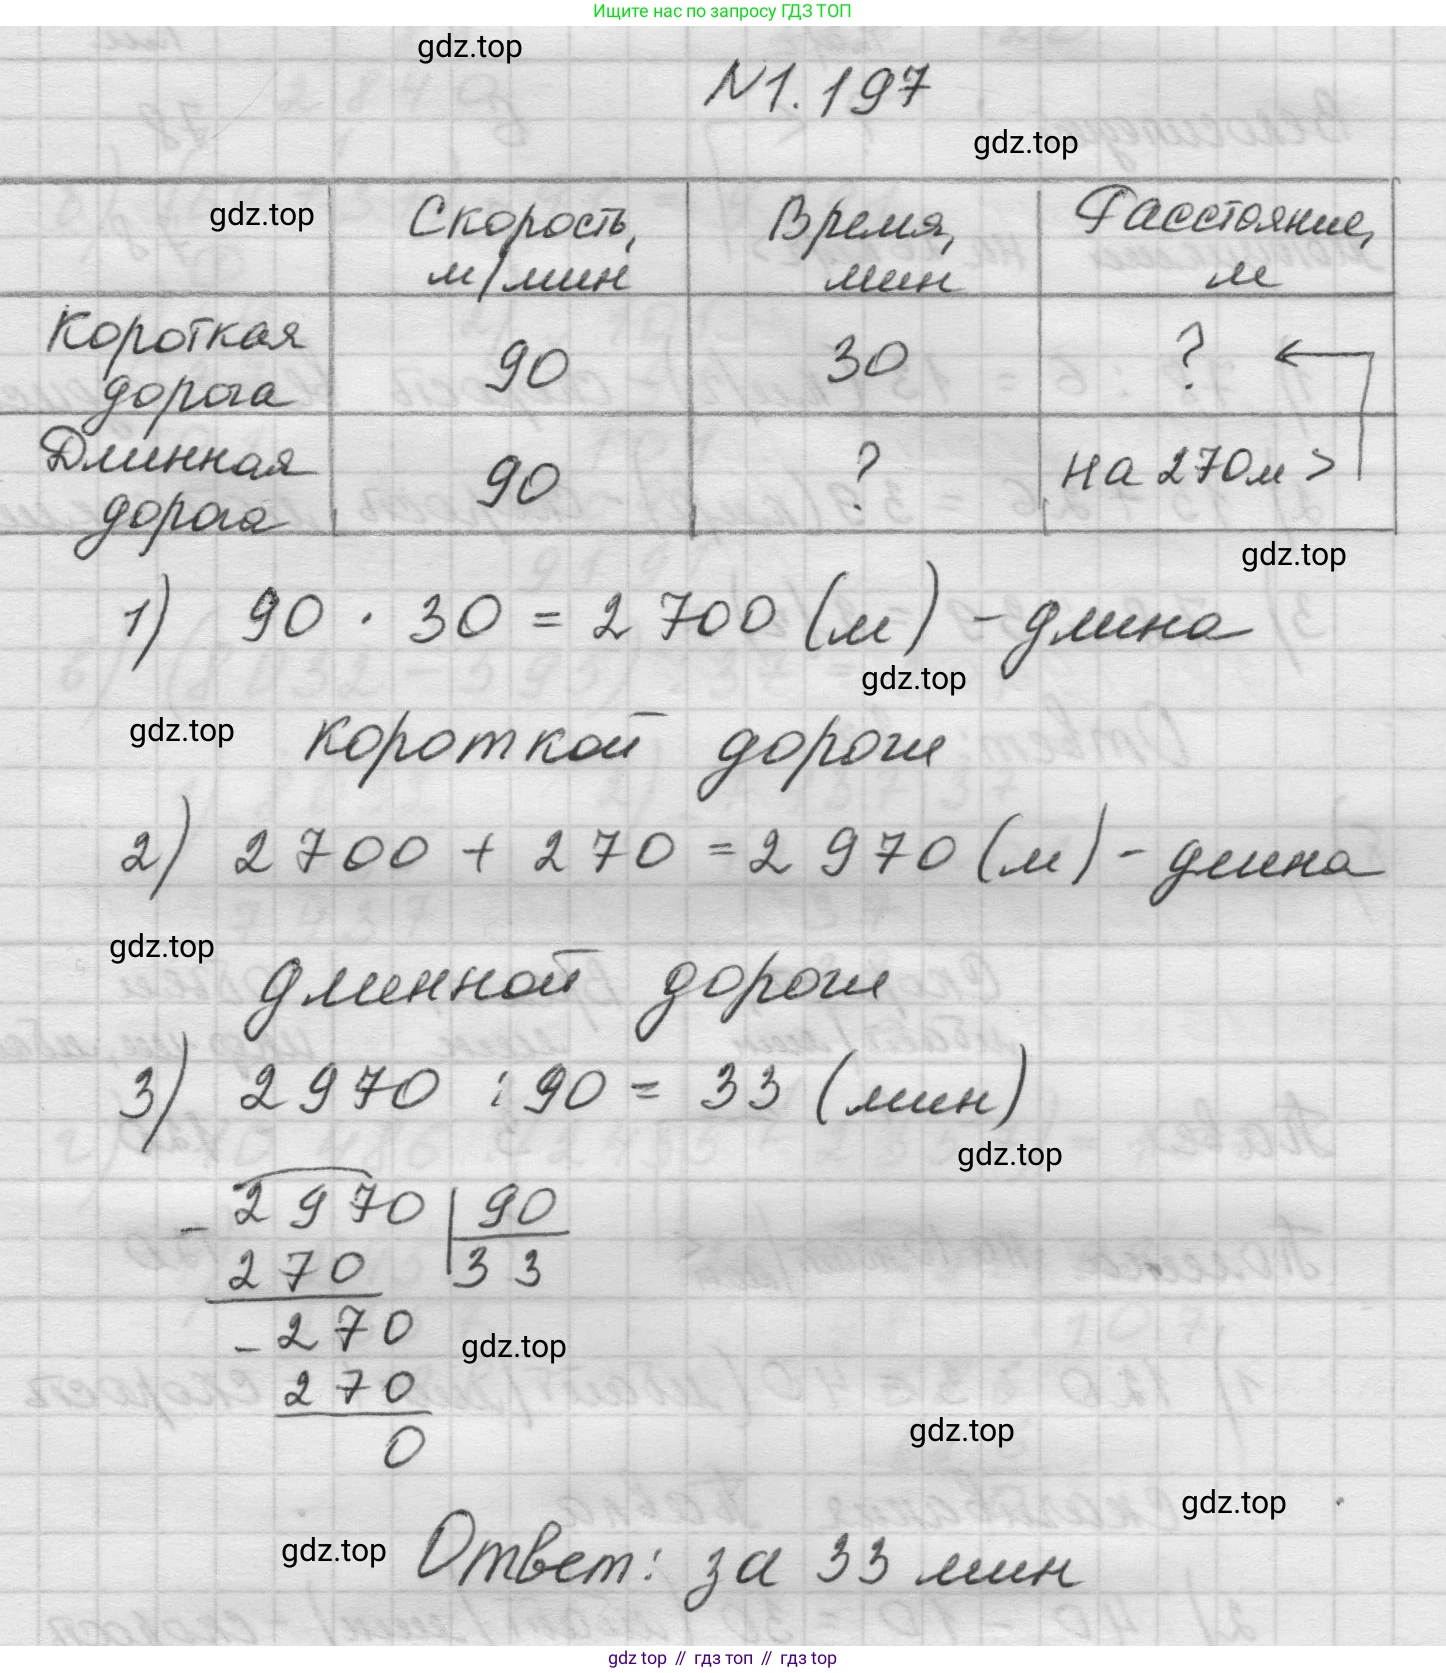 Ищите нас по запросу ГДЗ ТОП
gdz.top
№1.197
gdz.top
gdz.top
Скорость, м/мин
Время, мин
Расстояние, м
Короткая дорога
90
30
?
Длинная дорога
90
?
на 270м >
gdz.top
1) 90 · 30 = 2 700 (м) - длина
gdz.top
gdz.top
короткой дороги
2) 2 700 + 270 = 2 970 (м) - длина
gdz.top
длинной дороги
3) 2 970 : 90 = 33 (мин)
gdz.top
- 2970 | 90
270 | 33
- 270
gdz.top
270
gdz.top
0
gdz.top
gdz.top
Ответ: за 33 мин
gdz top // гдз топ // gdz top